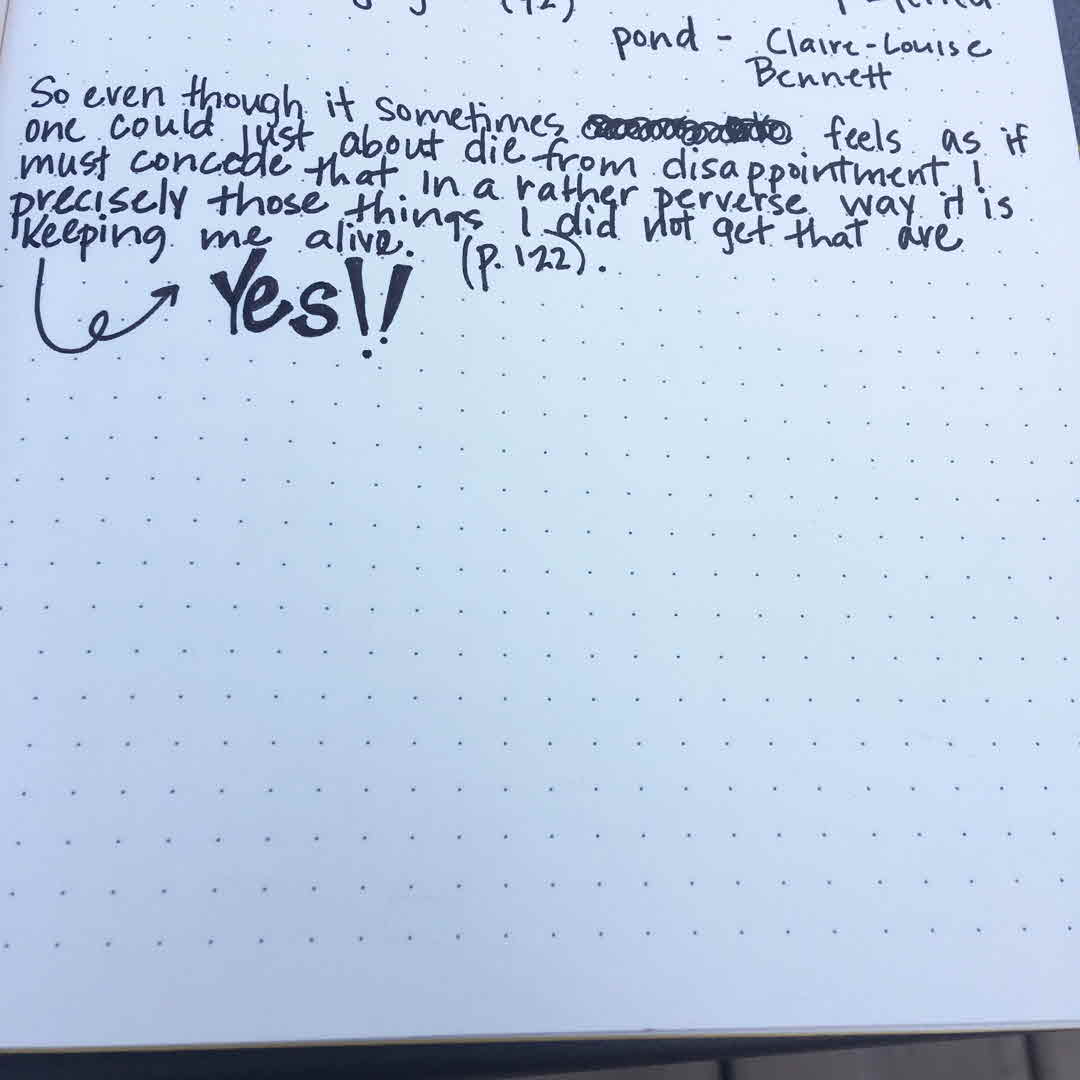 (42)
pond - Claire-Louise
Bennett
So even though it sometimes feels as if
one could just about die from disappointment I
must concede that in a rather perverse way it is
precisely those things I did not get that are
keeping me alive. (p. 122).
Yes!!